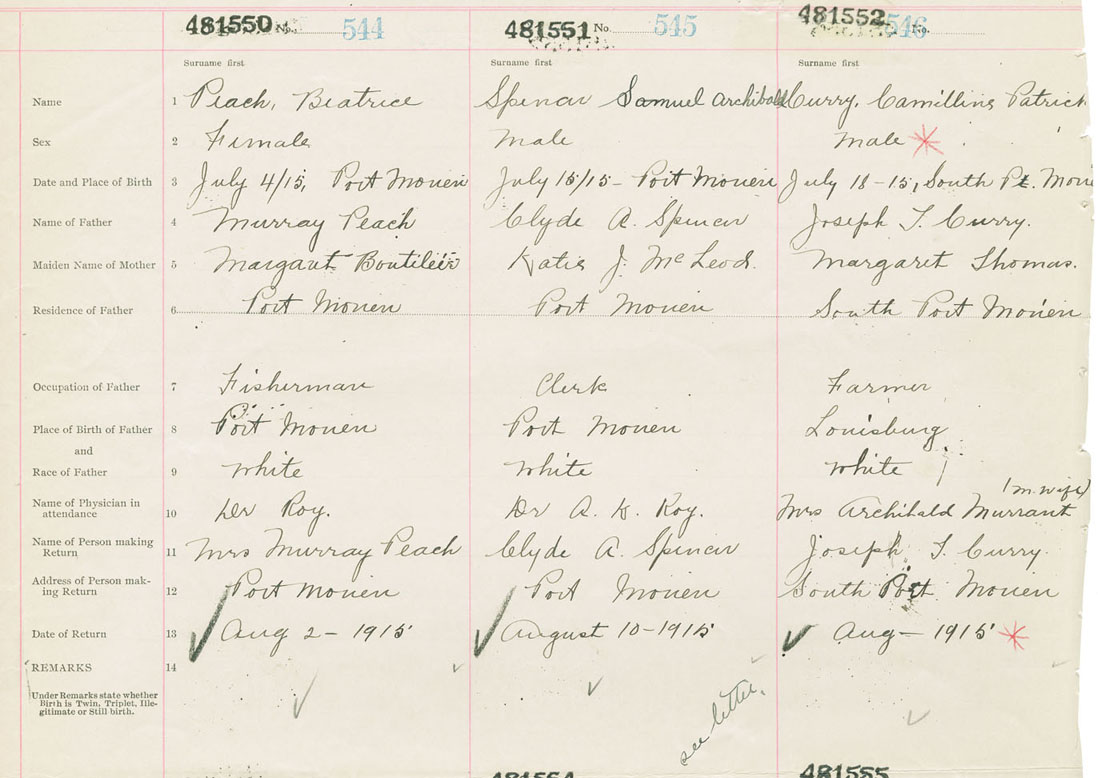 481550 No. 544 481551 No 545 481552 No. 546
Surname first Surname first Surname first
Name 1 Peach, Beatrice Spencer Samuel Archibald Curry, Camillins Patrick
Sex 2 Female Male Male
Date and Place of Birth 3 July 4/15, Port Morien July 15/15 - Port Morien July 18-15, South Pt. Morie
Name of Father 4 Murray Peach Clyde A. Spencer Joseph T. Curry.
Maiden Name of Mother 5 Margaret Boutilier Katie J. McLeod. Margaret Thomas.
Residence of Father 6 Port Morien Port Morien South Port Morien
Occupation of Father 7 Fisherman Clerk Farmer
Place of Birth of Father 8 Port Morien Port Morien Louisburg
and
Race of Father 9 White White White
(m. wife)
Name of Physician in
attendance 10 Dr Roy. Dr A. K. Roy. Mrs Archibald Murrant
Name of Person making
Return 11 Mrs Murray Peach Clyde A. Spencer Joseph T. Curry.
Address of Person mak-
ing Return 12 Port Morien Port Morien South Port Morien
Date of Return 13 Aug 2 - 1915 August 10-1915 Aug - 1915
REMARKS 14
Under Remarks state whether
Birth is Twin, Triplet, Ille-
gitimate or Still birth.
see letter.
481554 481555